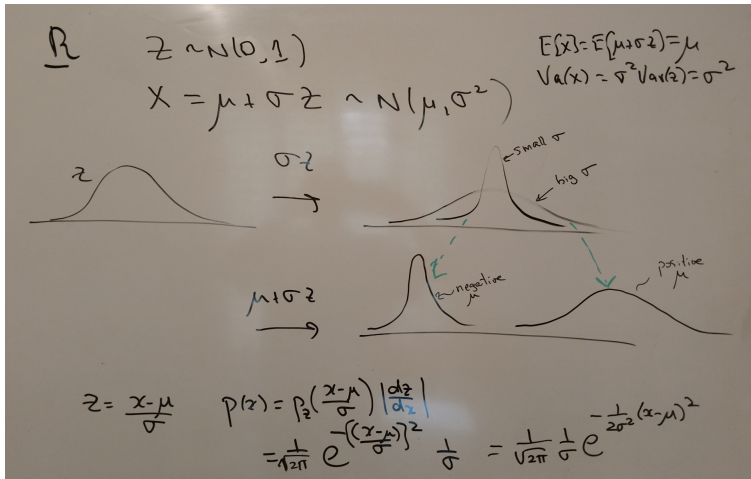 R
Z ~ N(0,1)
X = μ + σ Z ~ N(μ, σ²)
E[X] = E[μ+σ Z] = μ
Var(X) = σ² Var(Z) = σ²
Z
σZ
small σ
big σ
μ + σ Z
negative μ
positive μ
Z = (x-μ)/σ   p(x) = p_Z((x-μ)/σ) |dz/dx|
= 1/√2π e^(-[(x-μ)/σ]²) 1/σ = 1/√2π 1/σ e^(-1/2σ² (x-μ)²)